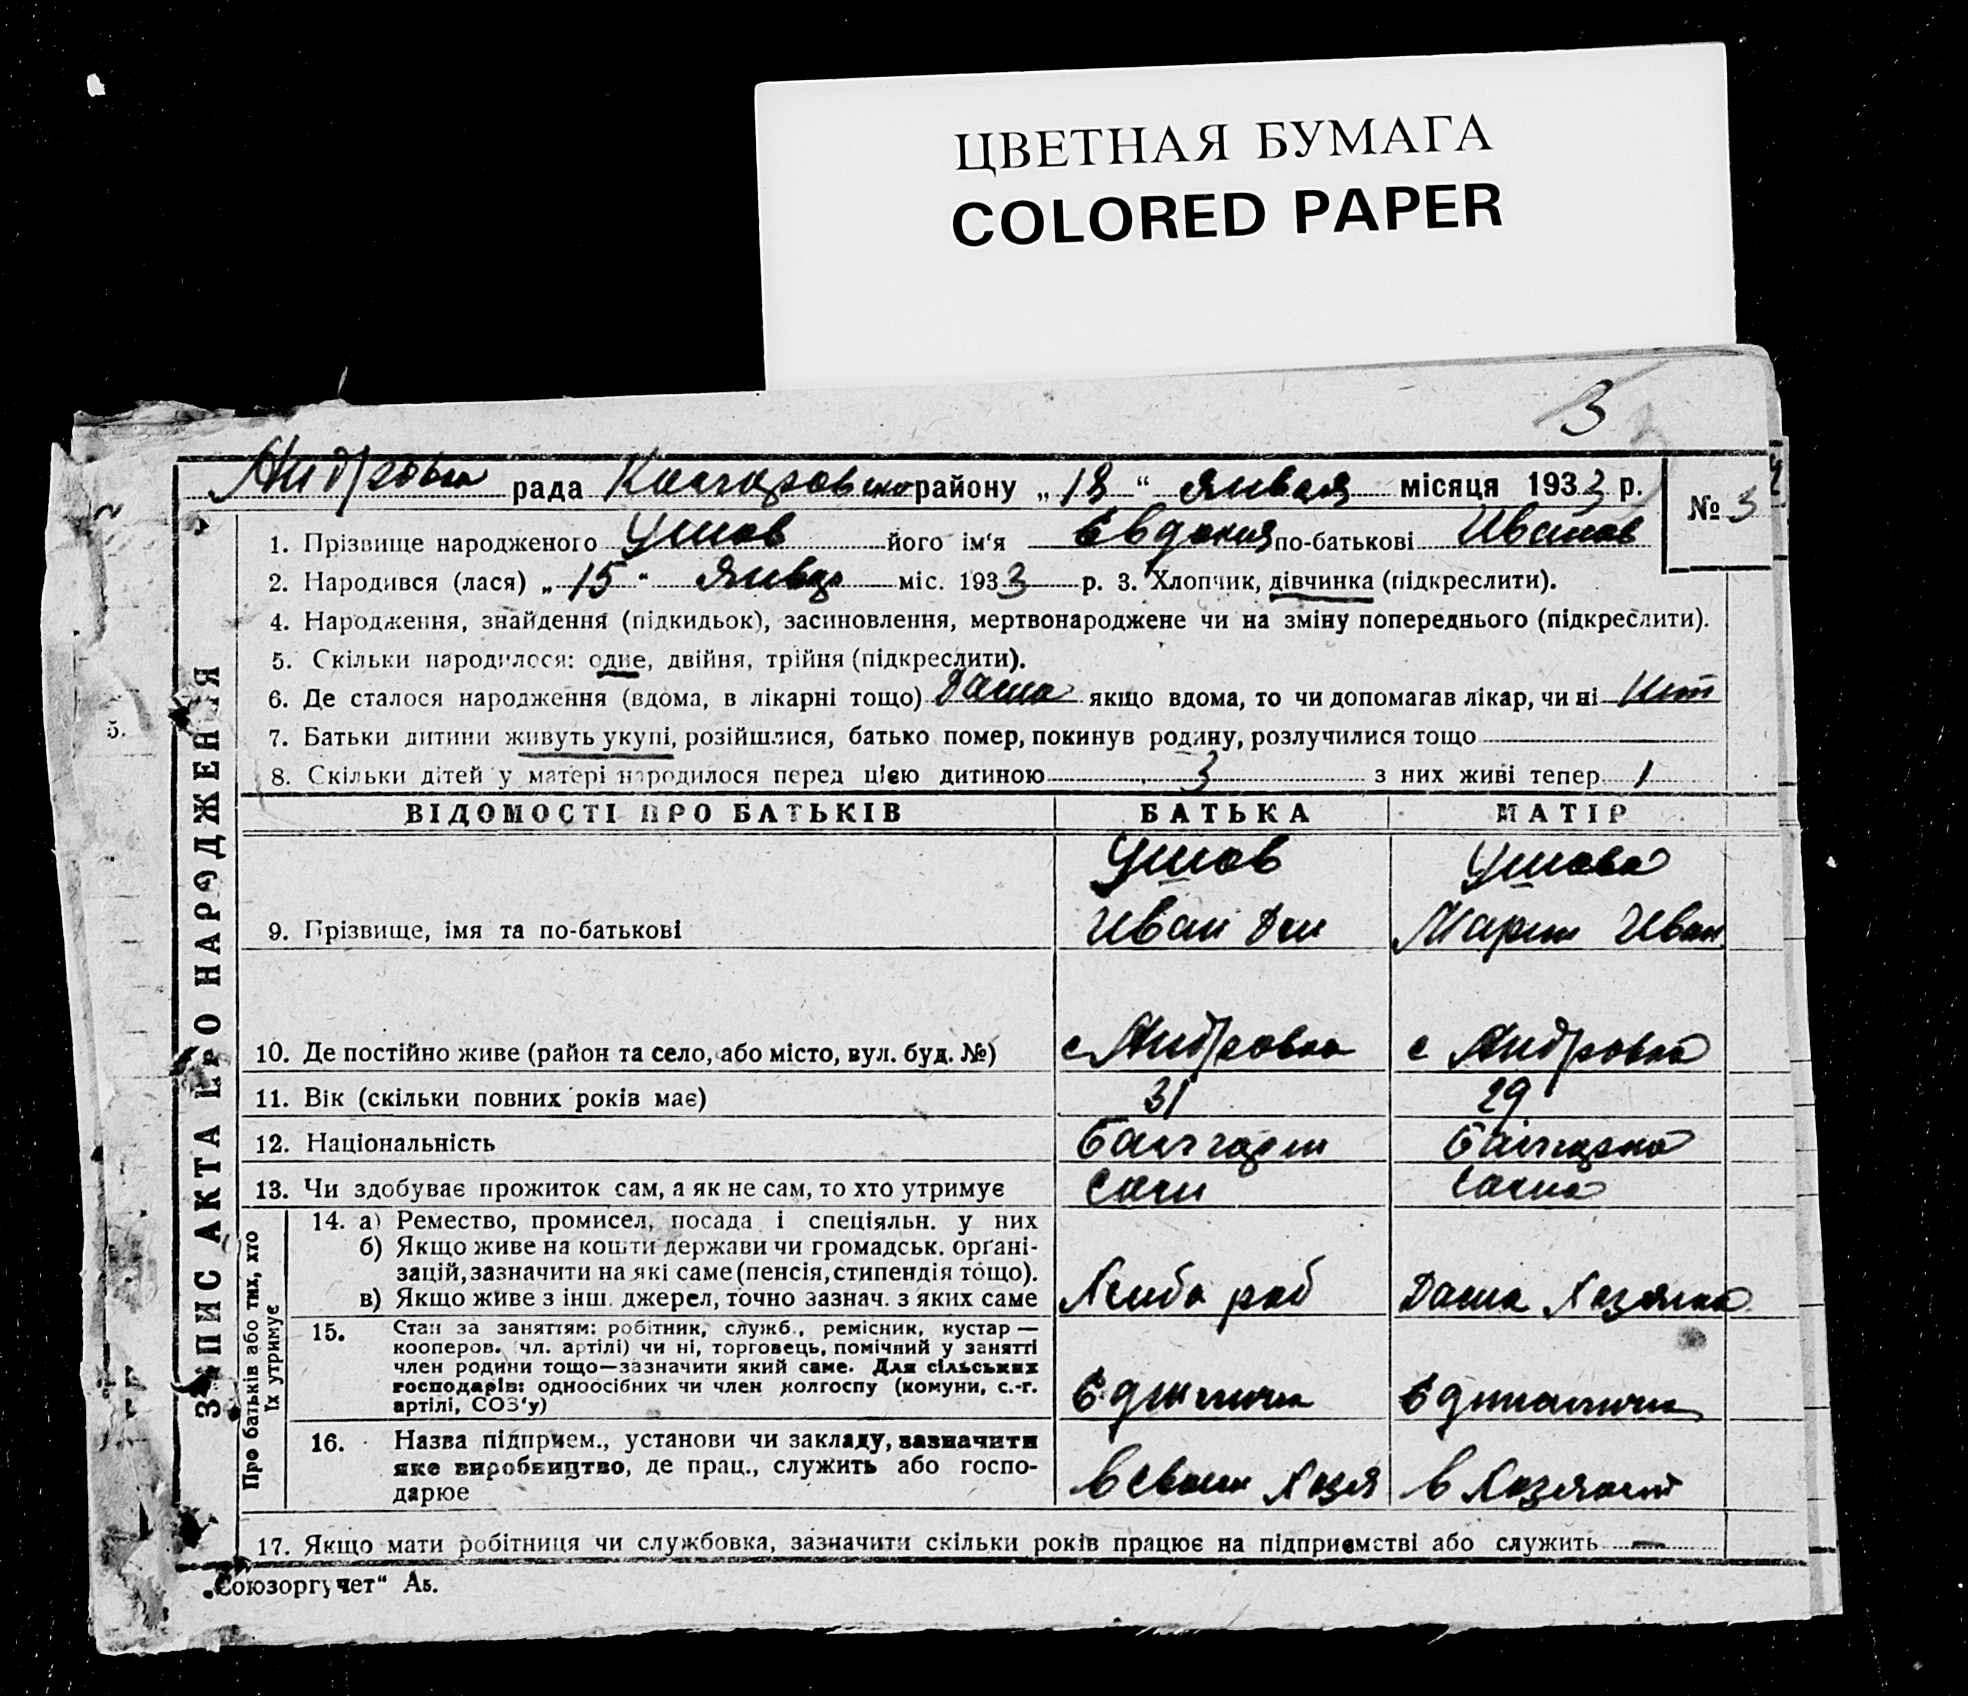 ЦВЕТНАЯ БУМАГА
COLORED PAPER
3
Андровка рада районy „18“ января місяця 1933 р. № 3
1. Прізвище народженого Ушов його ім‘я Евдокия по-батькові Иванов
2. Народився (лася) „15“ январ міс. 1933 р. 3. Хлопчик, дівчинка (підкреслити).
4. Народження, знайдення (підкидьок), засиновлення, мертвонароджене чи на зміну попереднього (підкреслити).
5. Скільки народилося: одне, двійня, трійня (підкреслити).
6. Де сталося народження (вдома, в лікарні тощо) Дома якщо вдома, то чи допомагав лікар, чи ні
7. Батьки дитини живуть укупі, розійшлися, батько помер, покинув родину, розлучилися тощо
8. Скільки дітей у матері народилося перед цією дитиною 3 з них живі тепер 1
ВІДОМОСТІ ПРО БАТЬКІВ БАТЬКА МАТІР
Ушов Ушова
9. Прізвище, імя та по-батькові Иван Мария Иван
10. Де постійно живе (район та село, або місто, вул. буд. №) с Андровка с Андровка
11. Вік (скільки повних років має) 31 29
12. Національність Болгарин Болгарка
13. Чи здобуває прожиток сам, а як не сам, то хто утримує Сам Сама
14. а) Ремество, промисел, посада і спеціяльн. у них
б) Якщо живе на кошти держави чи громадськ. орґані-
зацій, зазначити на які саме (пенсія, стипендія тощо).
в) Якщо живе з інш. джерел, точно зазнач. з яких саме Хлибо роб Дома Хозяйка
15. Стан за заняттям: робітник, служб., ремісник, кустар —
кооперов. (чл. артілі) чи ні, торговець, помічний у занятті
член родини тощо—зазначити який саме. Для сільських
господарів: одноосібних чи член колгоспу (комуни, с.-г.
артілі, СОЗ‘у)
16. Назва підприєм., установи чи закладу, зазначити
яке виробництво, де прац., служить або госпо-
дарює в своем Хозя в
17. Якщо мати робітниця чи службовка, зазначити скільки років працює на підприємстві або служить —
„Союзоргучет“ А5.
ЗАПИС АКТА ПРО НАРОДЖЕННЯ
Про батьків або тих, хто
їх утримує
5.